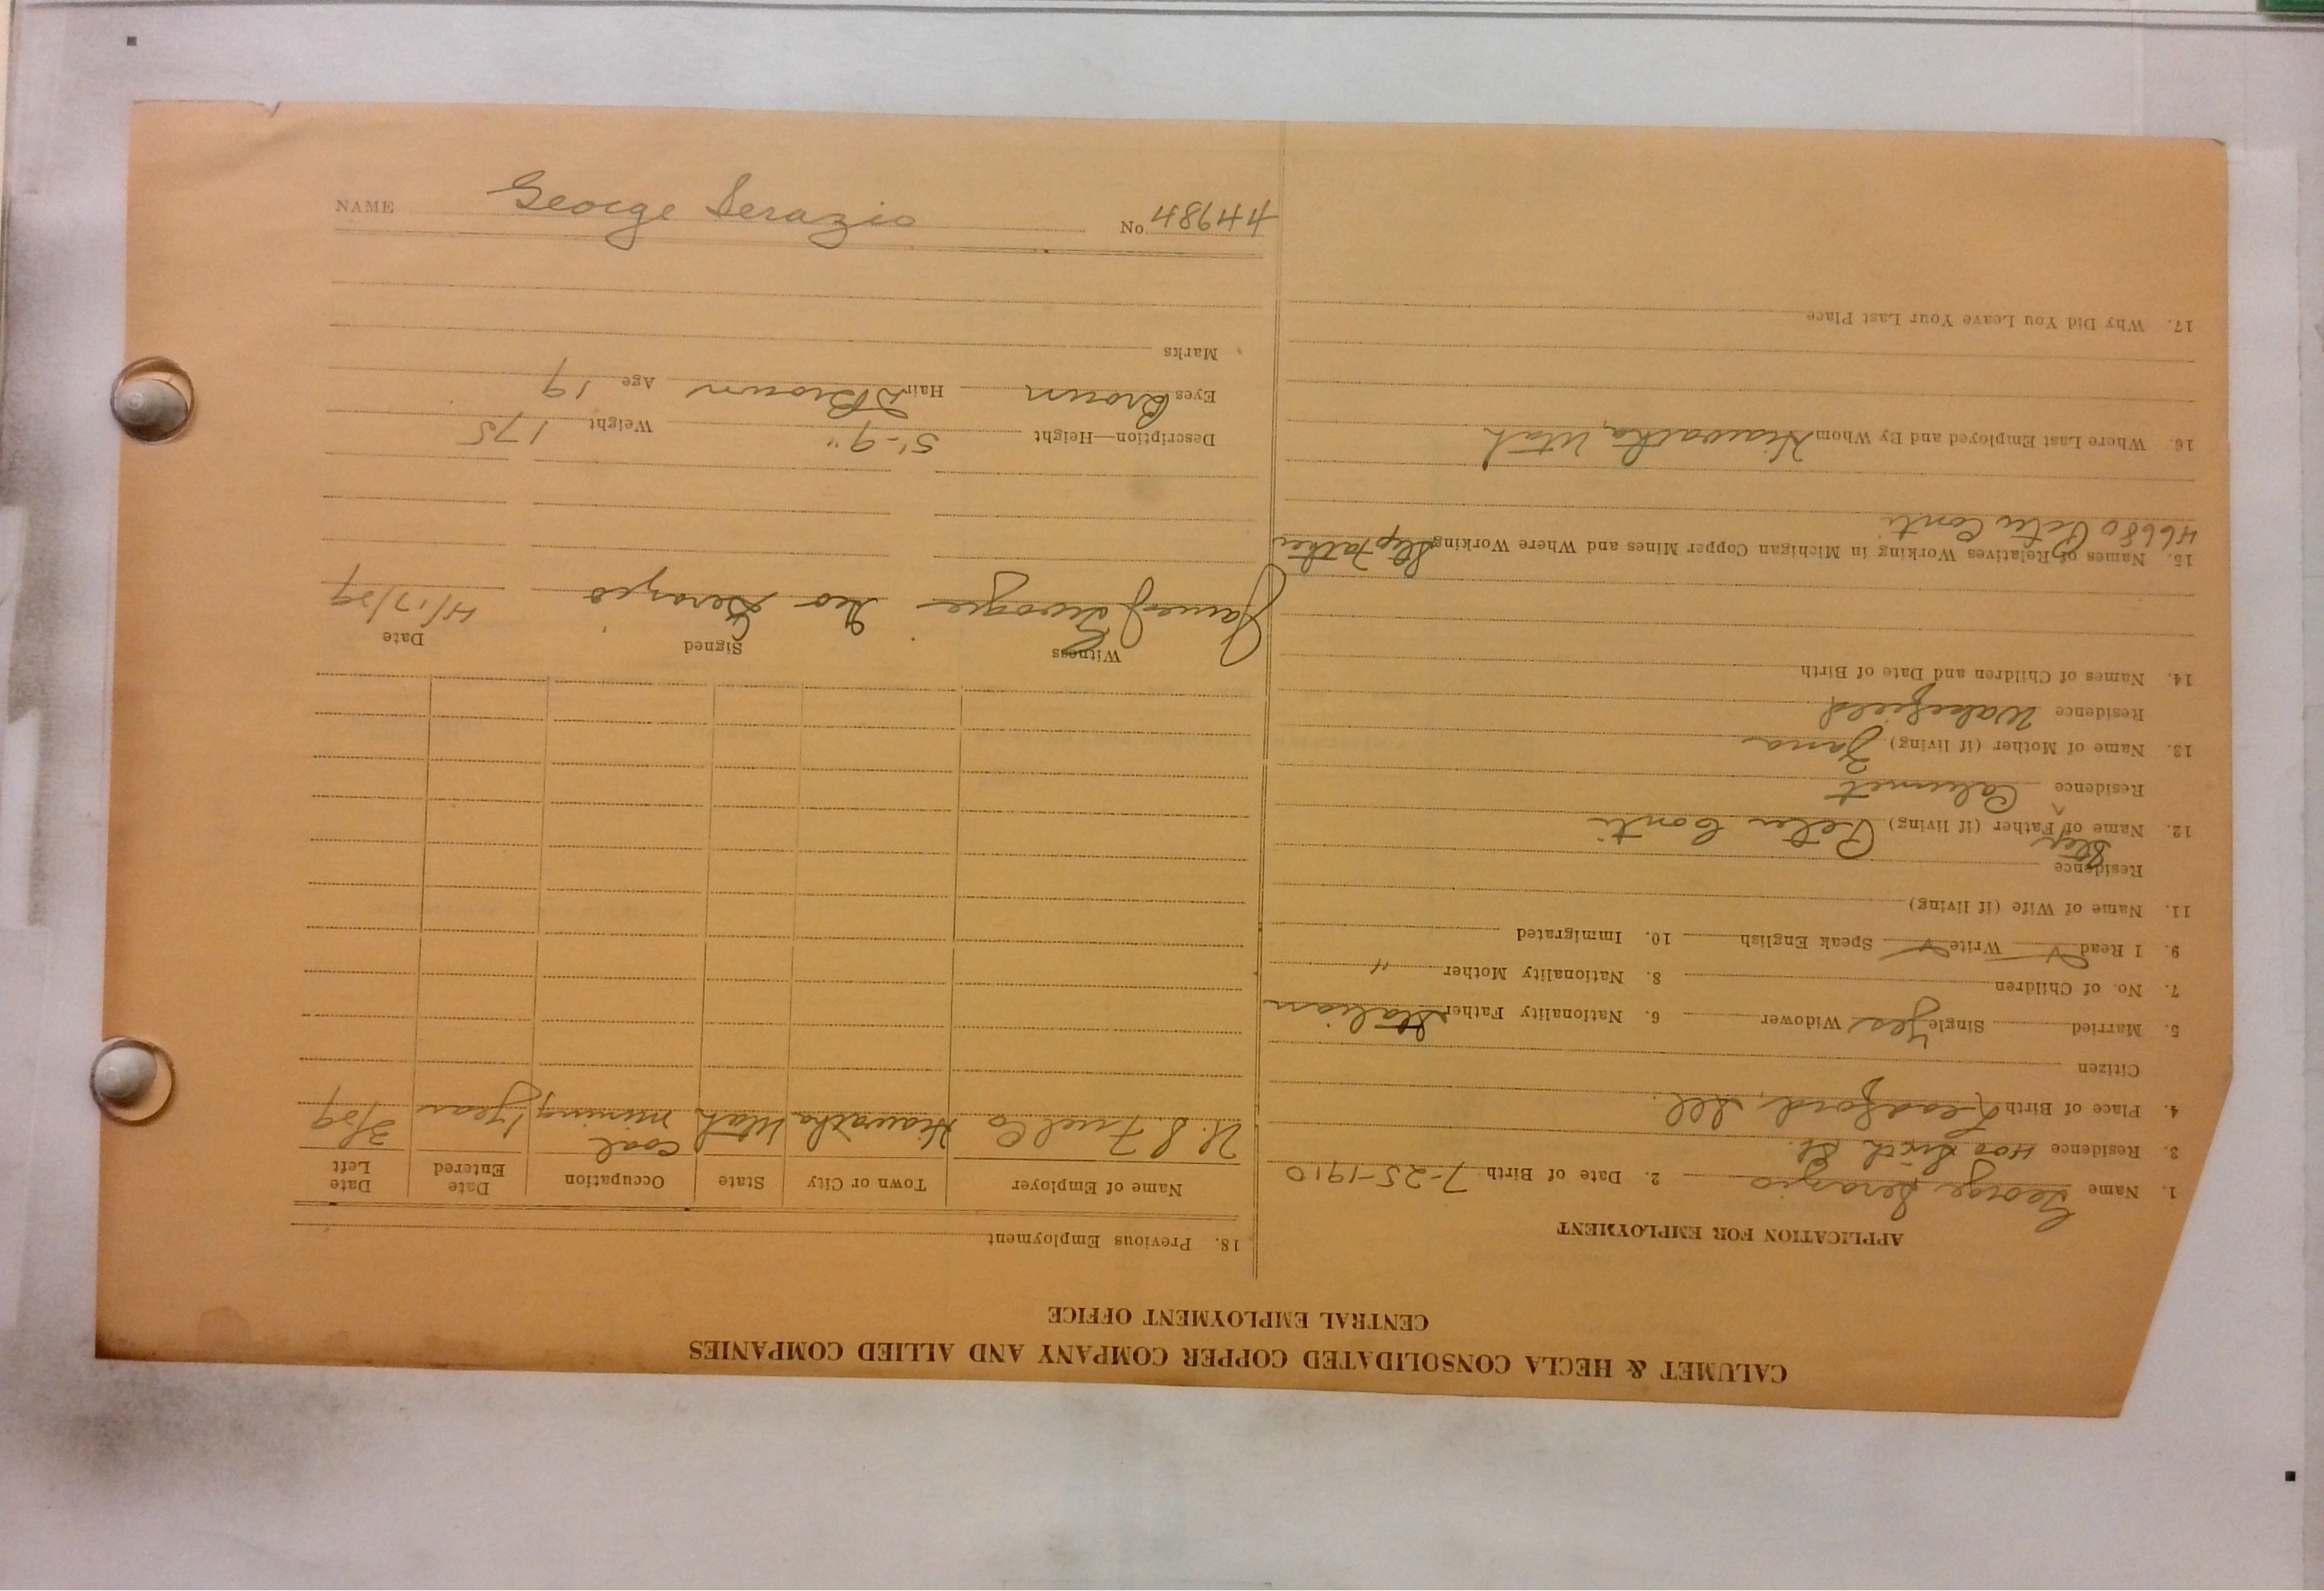 CALUMET & HECLA CONSOLIDATED COPPER COMPANY AND ALLIED COMPANIES
CENTRAL EMPLOYMENT OFFICE
APPLICATION FOR EMPLOYMENT
1. Name George Serazio 2. Date of Birth 7-25-1910
3. Residence 400 Sixth St.
4. Place of Birth Ill.
Citizen
5. Married Single Yes Widower 6. Nationality Father Italian
7. No. of Children 8. Nationality Mother "
9. I Read ✓ Write ✓ Speak English 10. Immigrated
11. Name of Wife (if living)
Residence
Step
12. Name of ^ Father (if living) Peter Conti
Residence Calumet
13. Name of Mother (if living)
Residence Wakefield
14. Names of Children and Date of Birth
15. Names of Relatives Working in Michigan Copper Mines and Where Working Step Father
46680 Peter Conti
16. Where Last Employed and By Whom Hiawatha, Utah
17. Why Did You Leave Your Last Place
18. Previous Employment
Name of Employer Town or City State Occupation Date Entered Date Left
U. S. Fuel Co Hiawatha Utah coal mining 1 year 3/29
Witness Signed Date
James Geo Serazio 4/17/29
Description—Height 5'-9" Weight 175
Eyes Brown Hair D Brown Age 19
Marks
NAME George Serazio No 44984